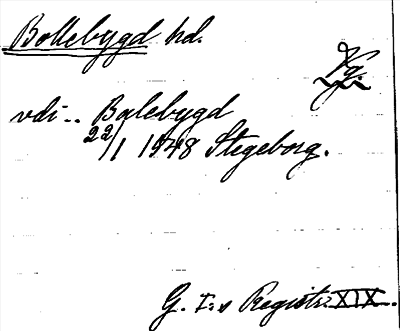 Bollebygd hd.
Vg.
vdi .. Bolebygd
22/1 1548 Stegeborg.
G. I:s Registr. XIX.